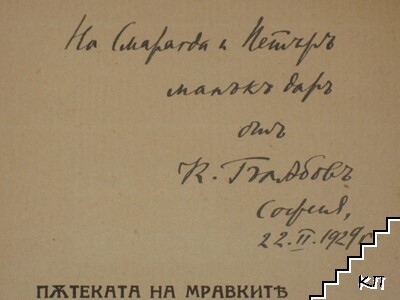 На Смарагда и Петъръ
малъкъ даръ
отъ
К. Гълѫбовъ
София,
22.II.1929 г.
ПѪТЕКАТА НА МРАВКИТѢ
КП